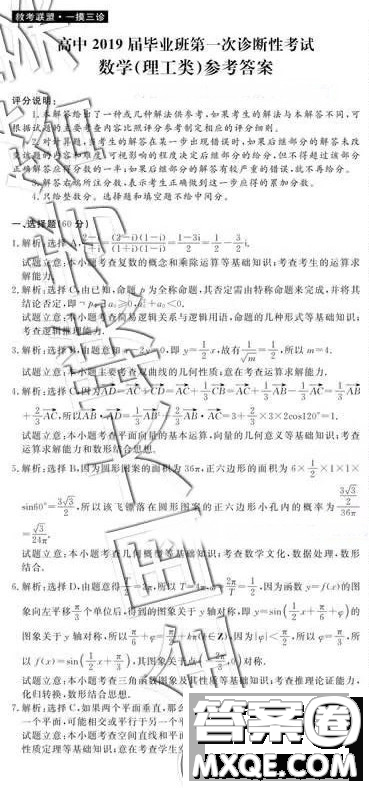 教考联盟·一摸三诊
高中 2019 届毕业班第一次诊断性考试
数学(理工类)参考答案
评分说明:
1.本解答给出了一或几种解法供参考,如果考生的解法与本解答不同,可
根据试题的主要考查内容比照评分参考制定相应的评分细则。
2.对计算题,当考生的解答在某一步出现错误时,如果后继部分的解答未改
变该题的内容和难度,可视影响的程度决定后继部分的给分,但不得超过该部分
正确解答应得分数的一半;如果后继部分的解答有较严重的错误,就不再给分。
3.解答右端所注分数,表示考生正确做到这一步应得的累加分数。
4.只给整数分。选择题和填空题不给中间分。
一、选择题(60 分)
1.解析:选择 =(2-i)(1-i)/(1+i)(1-i)=(1-3i)/2=1/2-3/2 i.
试题立意:本小题考查复数的概念和乘除运算等基础知识;考查考生的运算求
解能力.
2.解析:选择 C.由已知,命题 p 为全称命题,其否定需由特称命题来完成,并将其
结论否定,即
试题立意:本小题考查简易逻辑关系与逻辑用语,命题的几种形式等基础知识;
考查逻辑推理能力.
3.解析:选择 由题意知 x-2y=0,即 y=1/2 x,故有 1/√m=1/2,所以 m=4.
试题立意:本小题主要考查双曲线的几何性质;意在考查运算求解能力.
4.解析:选择 因为 AD=AC+CD=AC+1/3 CB=AC+1/3 AB-1/3 AC=1/3 AB
+2/3 AC,所以 AB·AD=1/3 AB²+2/3 AB·AC=3+2/3×3×2cos120°=1.
试题立意:本小题考查平面向量的基本运算,向量的几何意义等基础知识;考查
运算求解能力和数形结合思想.
5.解析:选择 B.因为圆形图案的面积为 36π,正六边形的面积为 6×1/2×1×1×
sin60°=3√3/2,所以该飞镖落在圆形图案的正六边形小孔内的概率为 (3√3/2)/36π
=√3/24π.
试题立意:本小题考查几何概型等基础知识;考查数学文化,数据处理,数形
结合.
6.解析:选择 D.由题意得 所以 T=4π, =2π/T=1/2,因为函数 y=f(x)的图
象向左平移 π/3 个单位后,得到的图象关于 y 轴对称,即 y=sin(1/2 x+π/6+φ)的
图象关于 y 轴对称,所以 π/6+φ=π/2+kπ(k∈Z),因为|φ|<π/2,所以 φ=π/3,所
以 f(x)=sin(1/2 x+π/3),其图象关于点(-2π/3,0)对称.
试题立意:本小题考查三角函数图象及其性质等基础知识;考查推理论证能力,
化归转换,数形结合思想.
7.解析:选择 C.如果两个平面垂直,那
一个平面,可能相交或平行于另一个平
试题立意:本小题考查空间直线和平面
性质定理等基础知识;意在考查学生
答案圈
MXQE.COM